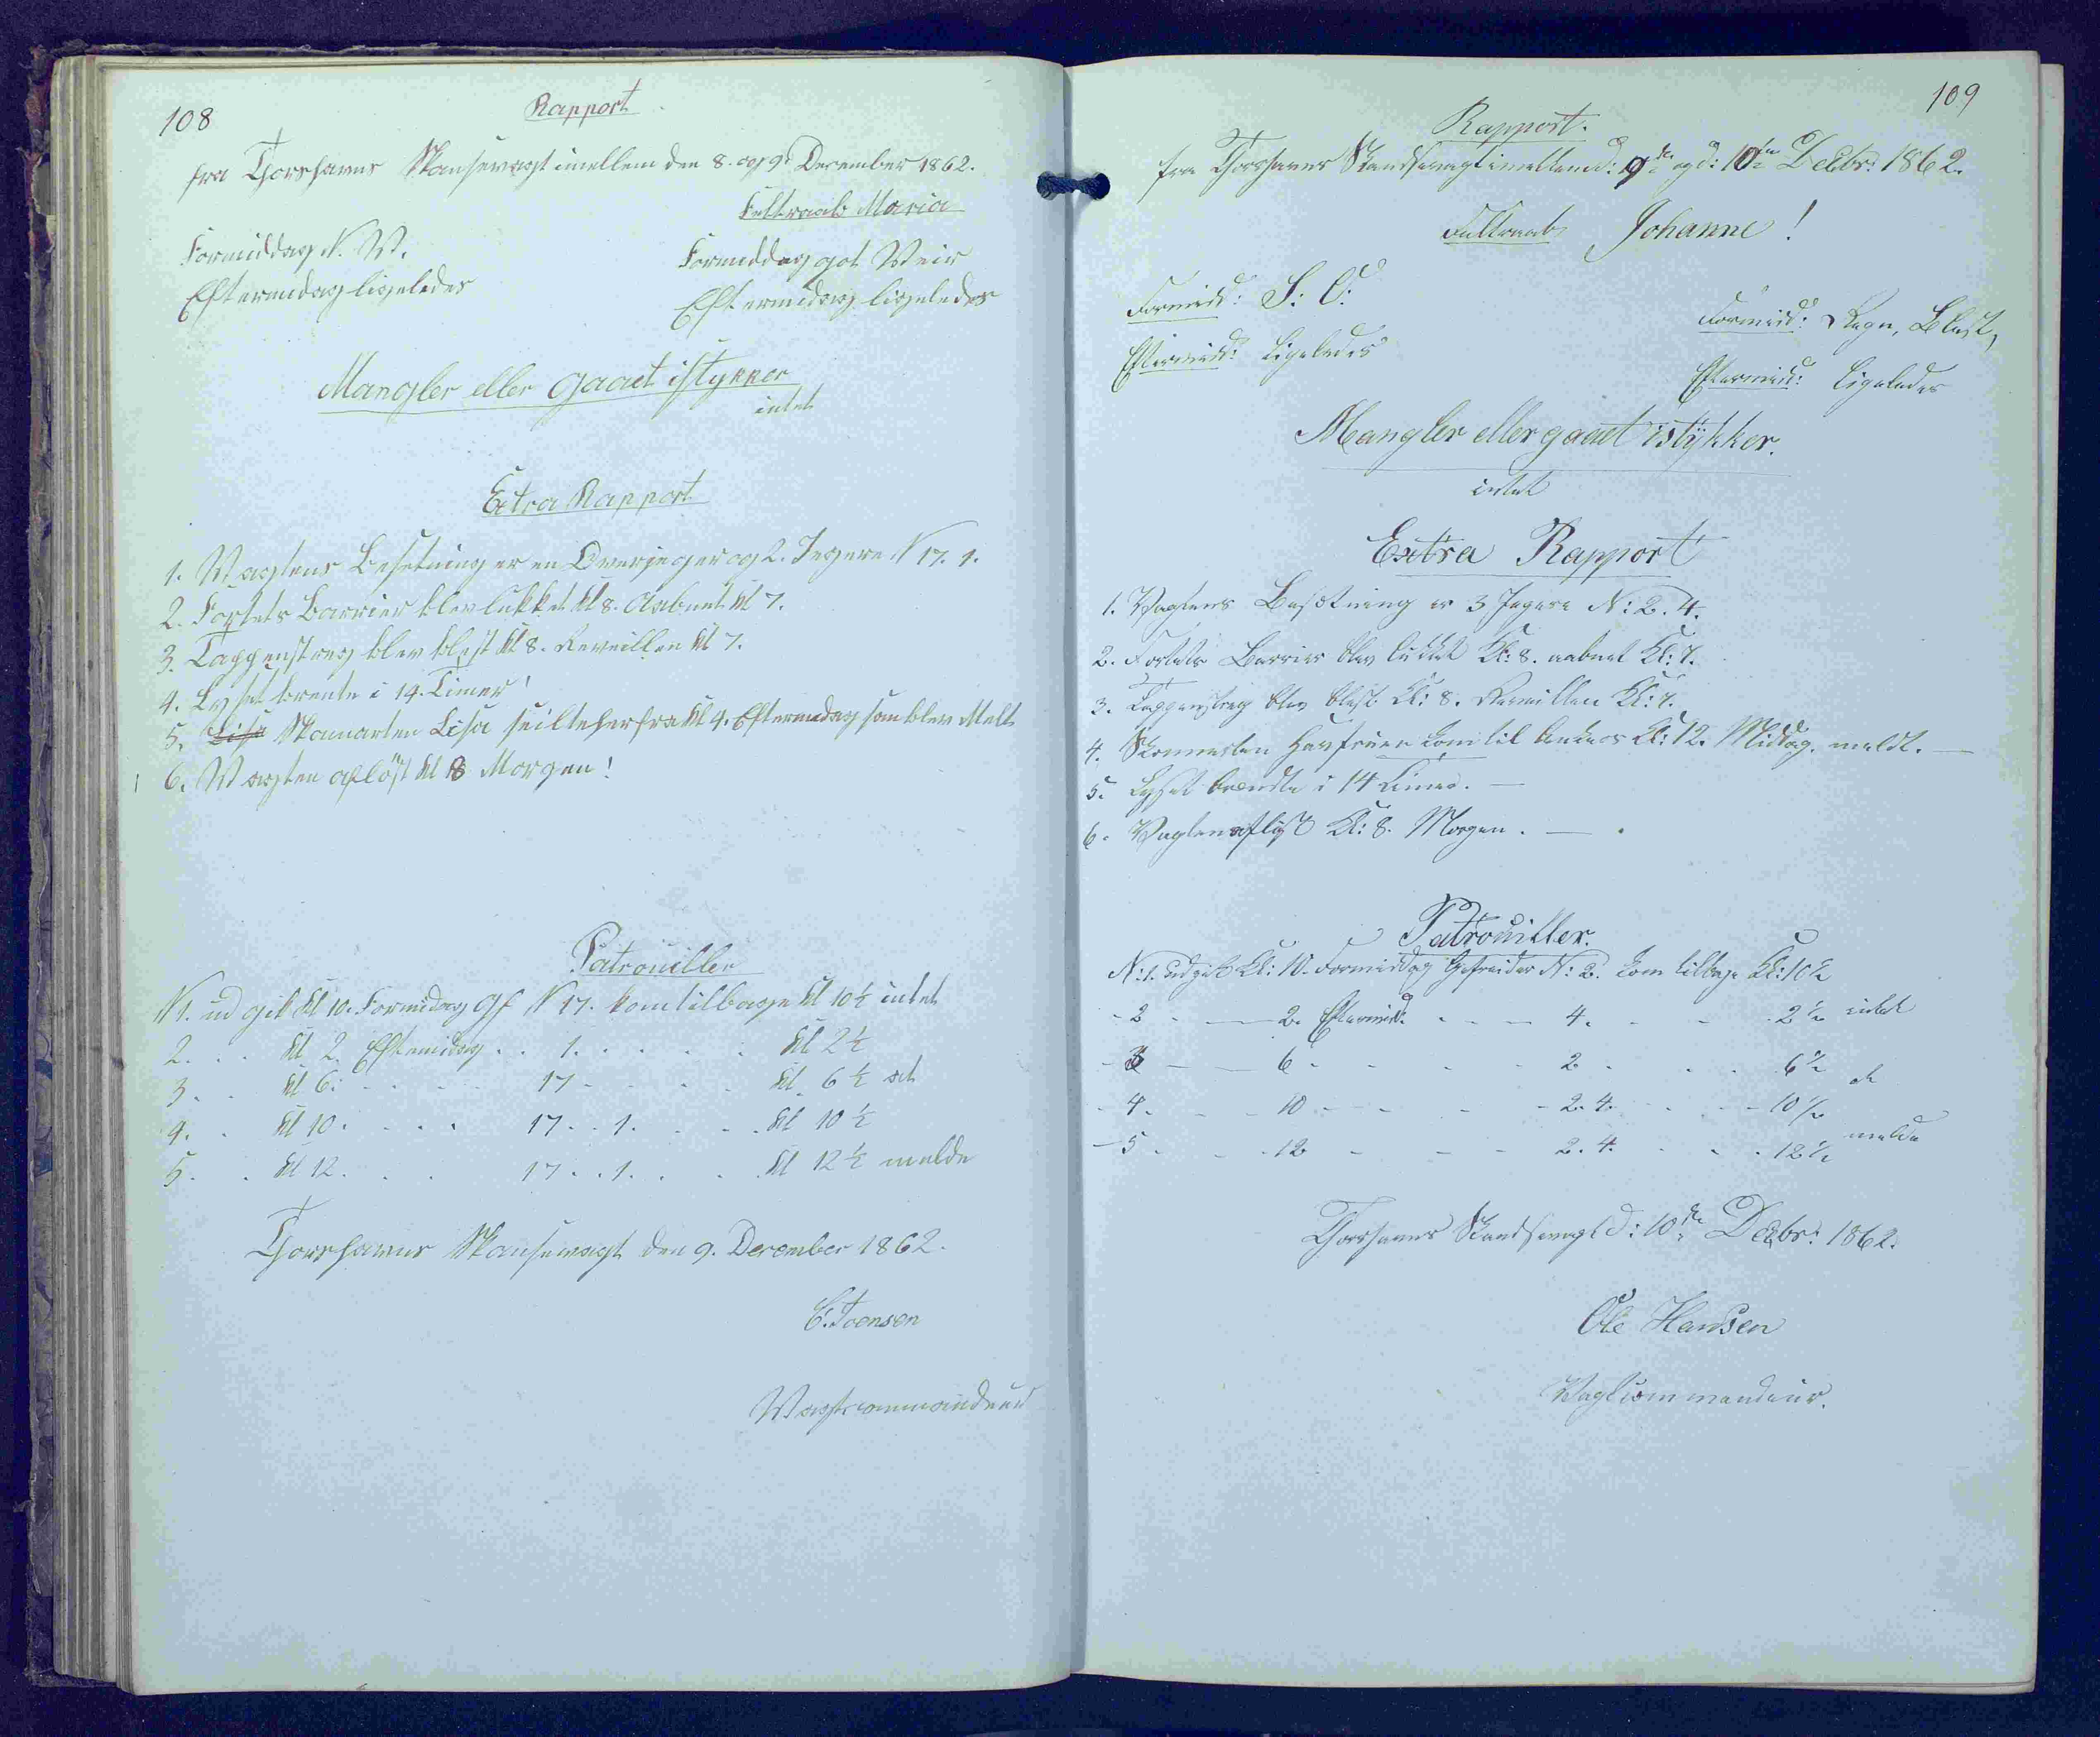 108
Rapport
fra Thorshavns Skansevagt imellem den 8. og 9d December 1862.
Feltraab Maria
Formiddag N. W.
Formiddag got Veir
Eftermidag ligeledes
Eftermidag ligeledes
Mangler eller gaaet istykker
intet
Extra Rapport
1. Wagtens Besetning er en Overjeger og 2. Jegere N 17. 1.
2. Fortets Barrier blev lukket Kl 8. Aabnet Kl 7.
3. Tappenstreg blev blest Kl 8. Reveillen Kl 7.
4. Lyset brente i 14. Timer!
5. Lisa Skonnarten Lisa seilte herfra Kl 4. Eftermidag som blev Melt
6. Wagten aflöst Kl 8 Morgen!
Patrouiller
N 1. ud gik Kl 10. Formidag Gf N 17. kom tilbage Kl 10½ intet
2. . . Kl 2. Eftemidag . . 1. . . . . . Kl 2½
3. . Kl 6. . . . . 17 . . . . Kl. 6½ at
4. . Kl 10. . . . 17. . 1. . . . Kl 10½
5. . Kl 12. . . 17. . 1. . . . Kl 12½ melde
Thorshavns Skansevagt den 9. December 1862.
C. Joensen
Wagtcommandeur
109
Rapport.
fra Thorshavns Skandsevagt imellem d: 9de og d: 10de Decbr: 1862.
Feltraab Johanne!
Formidd: S: O:
Formidd: Regn, Blæst,
Eftermidd: Ligeledes
Eftermidd: Ligeledes
Mangler eller gaaet istykker.
intet
Extra Rapport
1. Vagtens Besætning er 3 Jegere N: 2. 4.
2. Fortets Barrier blev lukket Kl: 8. aabnet Kl: 7.
3. Tappenstreg blev blæst Kl: 8. Reveillen Kl: 7.
4. Skonnerten Havfruen kom til Ankers Kl: 12. Middag. meldt. —
5. Lyset brændte i 14 Timer. —
6. Vagten aflöst Kl: 8. Morgen. —
Patrouiller.
N: 1. udgik Kl: 10. Formiddag Gefreider N: 2. kom tilbage Kl: 10½
- 2 - — 2. Eftermidd: - - - 4. - - - 2½ intet
- 3 — - 6 - - - - 2 - - - 6½ at
- 4. - - - 10 - - - - 2. 4. - - - 10½
- 5 - - - 12 - - - 2. 4. - - - 12½ melde
Thorshavns Skandsevagt d: 10de Decbr: 1862.
Ole Hansen
Vagtcommandeur.